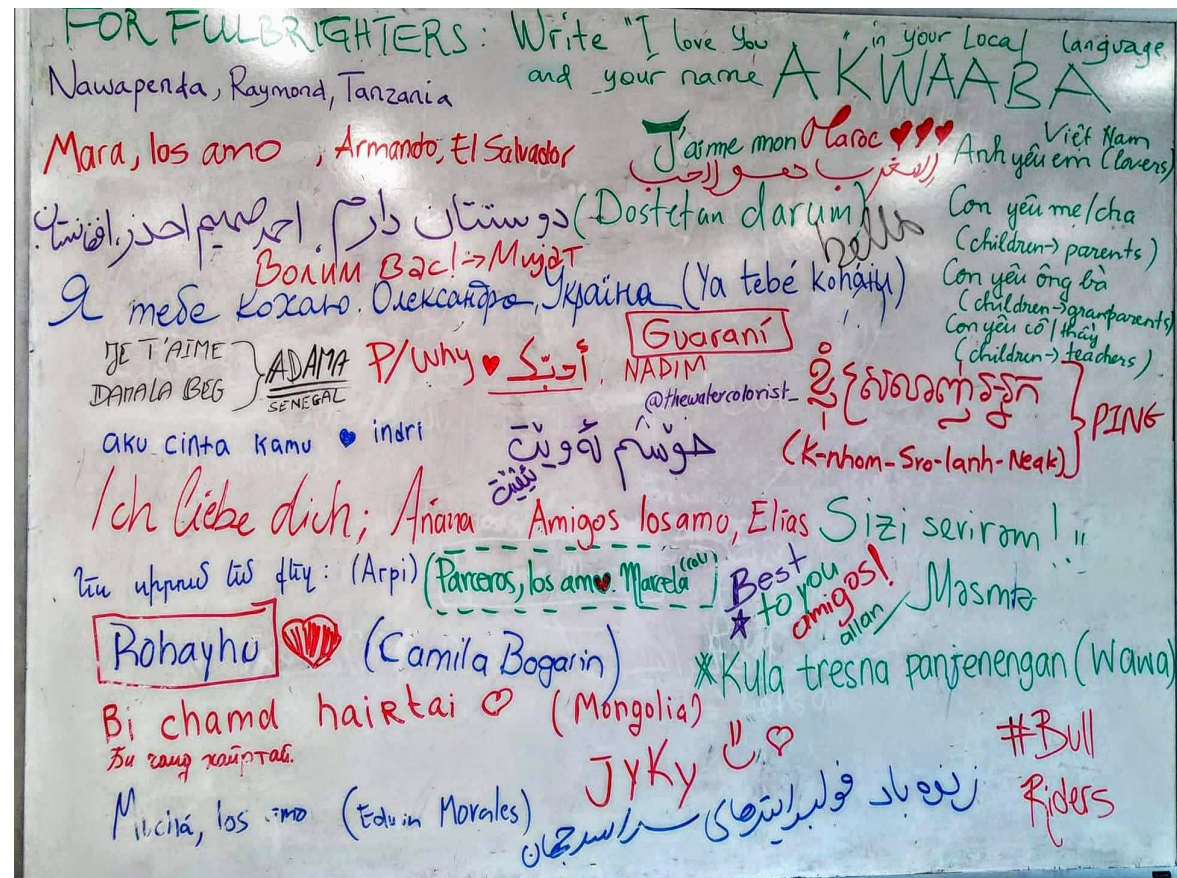 FOR FULBRIGHTERS: Write "I love you" in your Local language
and your name AKWAABA
Nawapenda, Raymond, Tanzania
Mara, los amo, Armando, El Salvador
J'aime mon Maroc ♥♥♥
Việt Nam
Anh yêu em (lovers)
دوستتان دارم. احمد صمیم احدز، افغانستان (Dostetan darum)
hello
Con yêu mẹ/cha
(children→ parents)
Con yêu ông bà
(children→granparents)
Con yêu cô/thầy
(children→ teachers)
Волим Вас! → Мијат
Я тебе кохаю. Олександра, Україна (Ya tebé koháiu)
Guaraní
JE T'AIME
DAMALA BEG
ADAMA
SENEGAL
P/Why ♥ أحبّك. NADIM
@thewatercolorist_
ខ្ញុំស្រលាញ់អ្នក
(K-nhom-Sro-lanh-Neak)
PING
aku cinta kamu ♥ indri
خۆشم ئەوێیت
Ich liebe dich; Ariana
Amigos los amo, Elias
Sizi sevirəm!!!
Məsmə
Ես սիրում եմ ձեզ: (Arpi)
(Parceros, los amo. Marcela (Col))
Best
to you
amigos!
allan
Rohayhu ♥ (Camila Bogarin)
*Kula tresna panjenengan (Wawa)
Bi chamd hairtai ♡ (Mongolia)
Би чамд хайртай.
JYKY ♡
#Bull
Riders
los amo (Edwin Morales)
زنده باد فولبرایترهای سراسر جهان